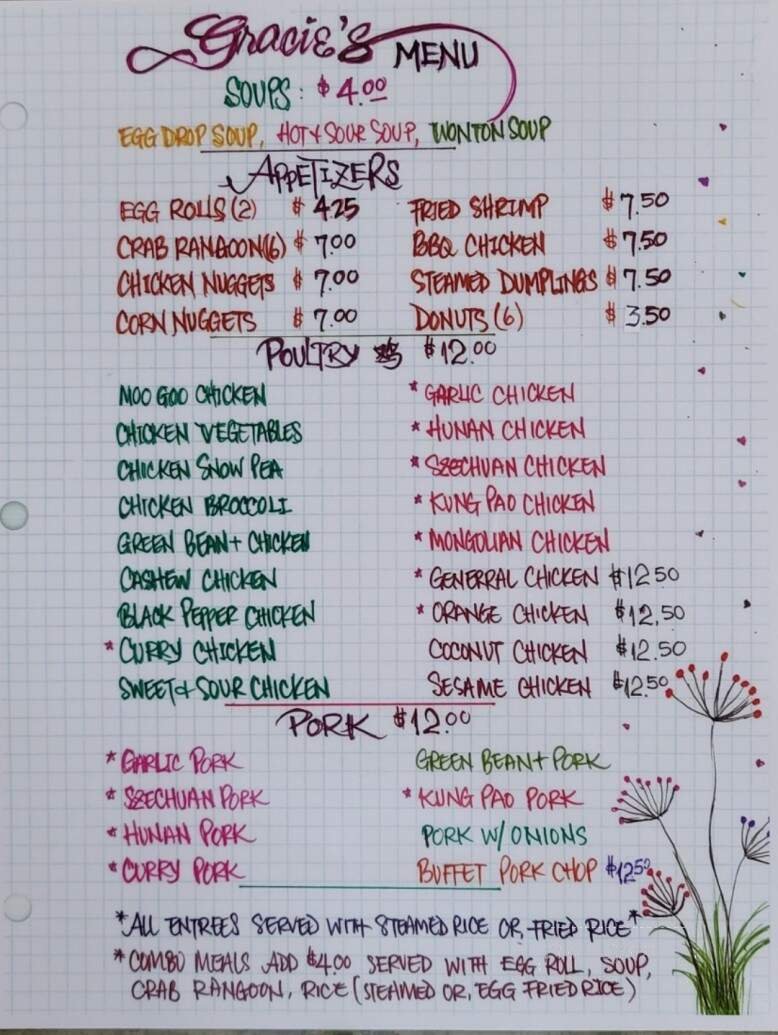 Gracie's MENU
SOUPS: $4.00
EGG DROP SOUP, HOT & SOUR SOUP, WONTON SOUP
APPETIZERS
EGG ROLLS (2) $4.25 FRIED SHRIMP $7.50
CRAB RANGOON (6) $7.00 BBQ CHICKEN $7.50
CHICKEN NUGGETS $7.00 STEAMED DUMPLINGS $7.50
CORN NUGGETS $7.00 DONUTS (6) $3.50
POULTRY $12.00
MOO GOO CHICKEN * GARLIC CHICKEN
CHICKEN VEGETABLES * HUNAN CHICKEN
CHICKEN SNOW PEA * SZECHUAN CHICKEN
CHICKEN BROCCOLI * KUNG PAO CHICKEN
GREEN BEAN + CHICKEN * MONGOLIAN CHICKEN
CASHEW CHICKEN * GENERRAL CHICKEN $12.50
BLACK PEPPER CHICKEN * ORANGE CHICKEN $12.50
* CURRY CHICKEN COCONUT CHICKEN $12.50
SWEET & SOUR CHICKEN SESAME CHICKEN $12.50
PORK $12.00
* GARLIC PORK GREEN BEAN + PORK
* SZECHUAN PORK * KUNG PAO PORK
* HUNAN PORK PORK W/ ONIONS
* CURRY PORK BUFFET PORK CHOP $12.50
*ALL ENTREES SERVED WITH STEAMED RICE OR, FRIED RICE*
* COMBO MEALS ADD $4.00 SERVED WITH EGG ROLL, SOUP,
CRAB RANGOON, RICE (STEAMED OR, EGG FRIED RICE)